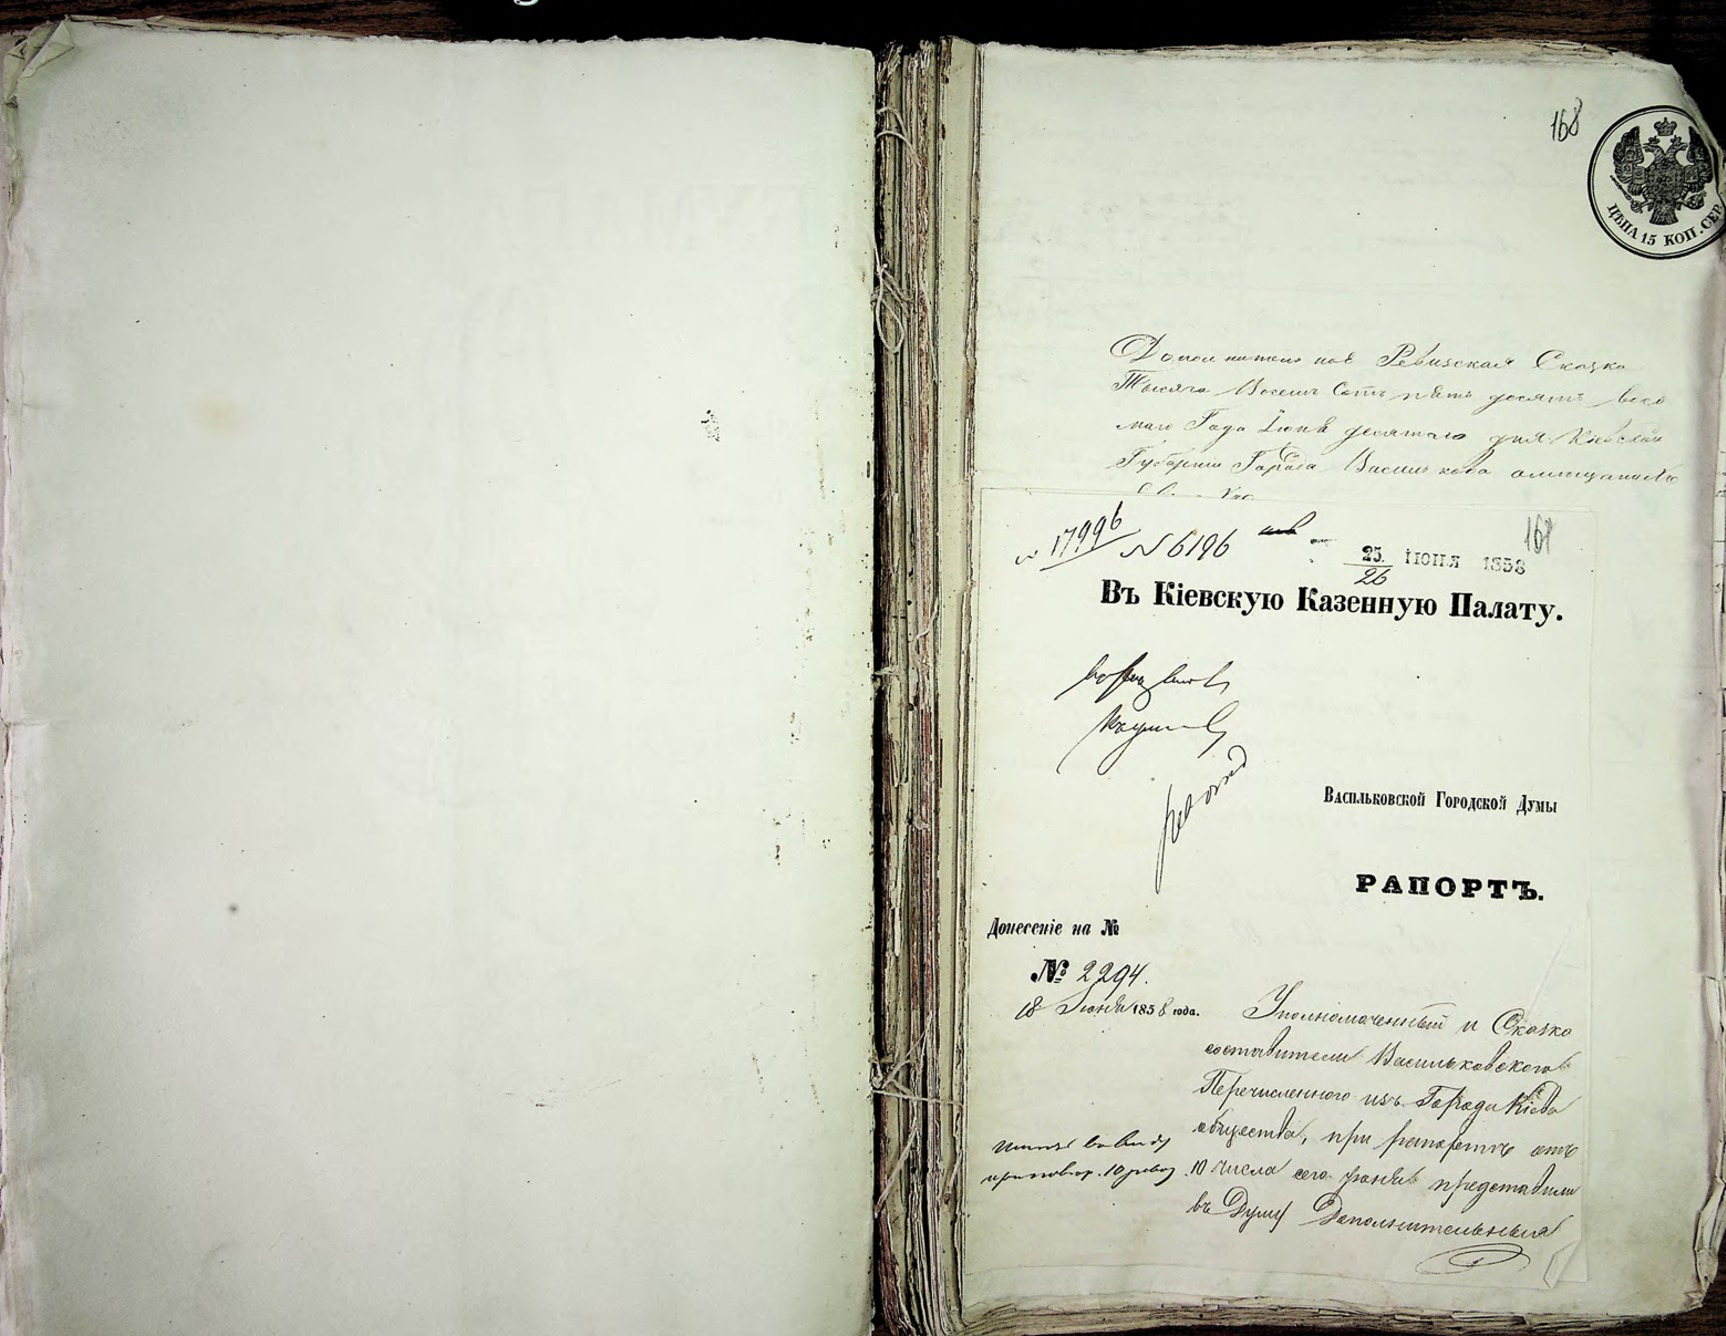 168
ЦѢНА 15 КОП. СЕР.
Дополнительная Ревизская Сказка
Тысяча Восемь Сотъ пять десять вось
маго Года Іюня десятаго дня Кіевской
Губерніи Города Василькова
17996 N 6196
25 ІЮНЯ 1858
26
161
Въ Кіевскую Казенную Палату.
Васильковской Городской Думы
РАПОРТЪ.
Донесеніе на №
№ 2294.
18 Іюня 1858 года.
Уполномоченный и Сказко
составители Васильковскаго
Перечисленнаго изъ Города Кіева
общества, при рапортѣ отъ
10 числа сего Іюня представили
въ Думу Дополнительныя